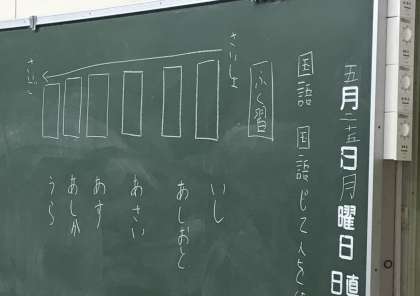 五月二十五日月曜日
日直
国語 国語じてんを
ふく習
さいしょ
いし
あしおと
あさい
あす
あしか
うら
さいご